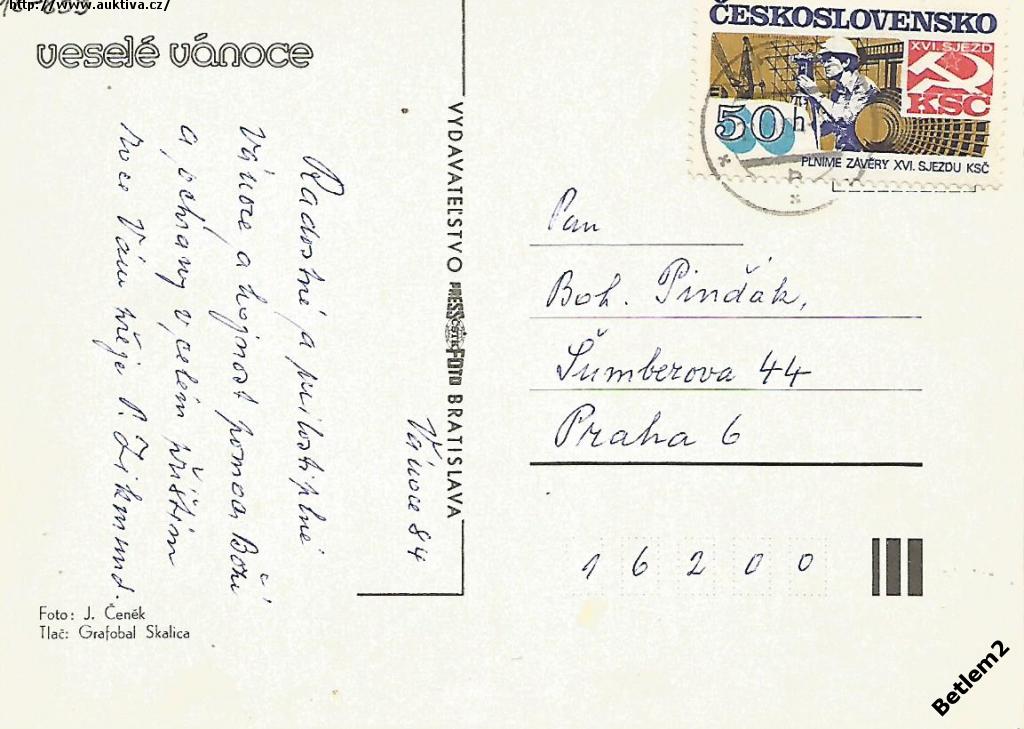 http://www.auktiva.cz/
veselé vánoce
Radostné a milostiplné
Vánoce a hojnost pomoci Boží
a ochrany v celém příštím
roce Vám přeje P. Zikmund.
Vánoce 84
VYDAVATEĽSTVO PRESSFOTO BRATISLAVA
ČSTK
ČESKOSLOVENSKO
XVI. SJEZD
KSČ
50 h
PLNÍME ZÁVĚRY XVI. SJEZDU KSČ
Pan
Boh. Pinďák,
Šumberova 44
Praha 6
1 6 2 0 0
Foto: J. Čeněk
Tlač: Grafobal Skalica
Betlem2